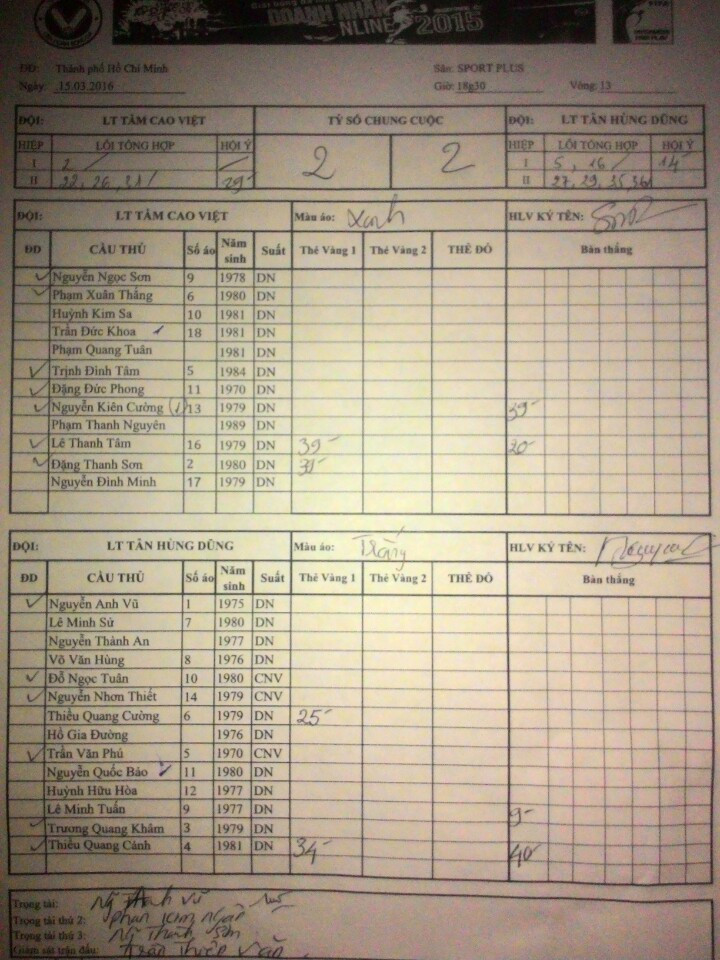 DOANH NHÂN
NLINE 2015
ĐĐ: Thành phố Hồ Chí Minh Sân: SPORT PLUS
Ngày: 15.03.2016 Giờ: 18g30 Vòng: 13
ĐỘI: LT TÂM CAO VIỆT TỶ SỐ CHUNG CUỘC ĐỘI: LT TÂN HÙNG DŨNG
HIỆP LỖI TỔNG HỢP HỘI Ý 2 2 HIỆP LỖI TỔNG HỢP HỘI Ý
I 2 / I 5, 16 / 14
II 22, 26, 31 / 29 II 27, 29, 35, 36
ĐỘI: LT TÂM CAO VIỆT Màu áo: Xanh HLV KÝ TÊN:
ĐD CẦU THỦ Số áo Năm sinh Suất Thẻ Vàng 1 Thẻ Vàng 2 THẺ ĐỎ Bàn thắng
Nguyễn Ngọc Sơn 9 1978 DN
Phạm Xuân Thắng 6 1980 DN
Huỳnh Kim Sa 10 1981 DN
Trần Đức Khoa 18 1981 DN
Phạm Quang Tuân 1981 DN
Trịnh Đình Tâm 5 1984 DN
Đặng Đức Phong 11 1970 DN
Nguyễn Kiên Cường (1) 13 1979 DN 39
Phạm Thanh Nguyên 1989 DN
Lê Thanh Tâm 16 1979 DN 39 20
Đặng Thanh Sơn 2 1980 DN 31
Nguyễn Đình Minh 17 1979 DN
ĐỘI: LT TÂN HÙNG DŨNG Màu áo: Trắng HLV KÝ TÊN:
ĐD CẦU THỦ Số áo Năm sinh Suất Thẻ Vàng 1 Thẻ Vàng 2 THẺ ĐỎ Bàn thắng
Nguyễn Anh Vũ 1 1975 DN
Lê Minh Sử 7 1980 DN
Nguyễn Thành An 1977 DN
Võ Văn Hùng 8 1976 DN
Đỗ Ngọc Tuân 10 1980 CNV
Nguyễn Nhơn Thiết 14 1979 CNV
Thiều Quang Cường 6 1979 DN 25
Hồ Gia Đường 1976 DN
Trần Văn Phú 5 1970 CNV
Nguyễn Quốc Bảo 11 1980 DN
Huỳnh Hữu Hòa 12 1977 DN
Lê Minh Tuấn 9 1977 DN 9
Trương Quang Khâm 3 1979 DN
Thiều Quang Cảnh 4 1981 DN 34 40
Trọng tài: Ng Anh Vũ
Trọng tài thứ 2: Phan Kim Ngân
Trọng tài thứ 3: Ng Thanh Sơn
Giám sát trận đấu: Trần Thiện Văn